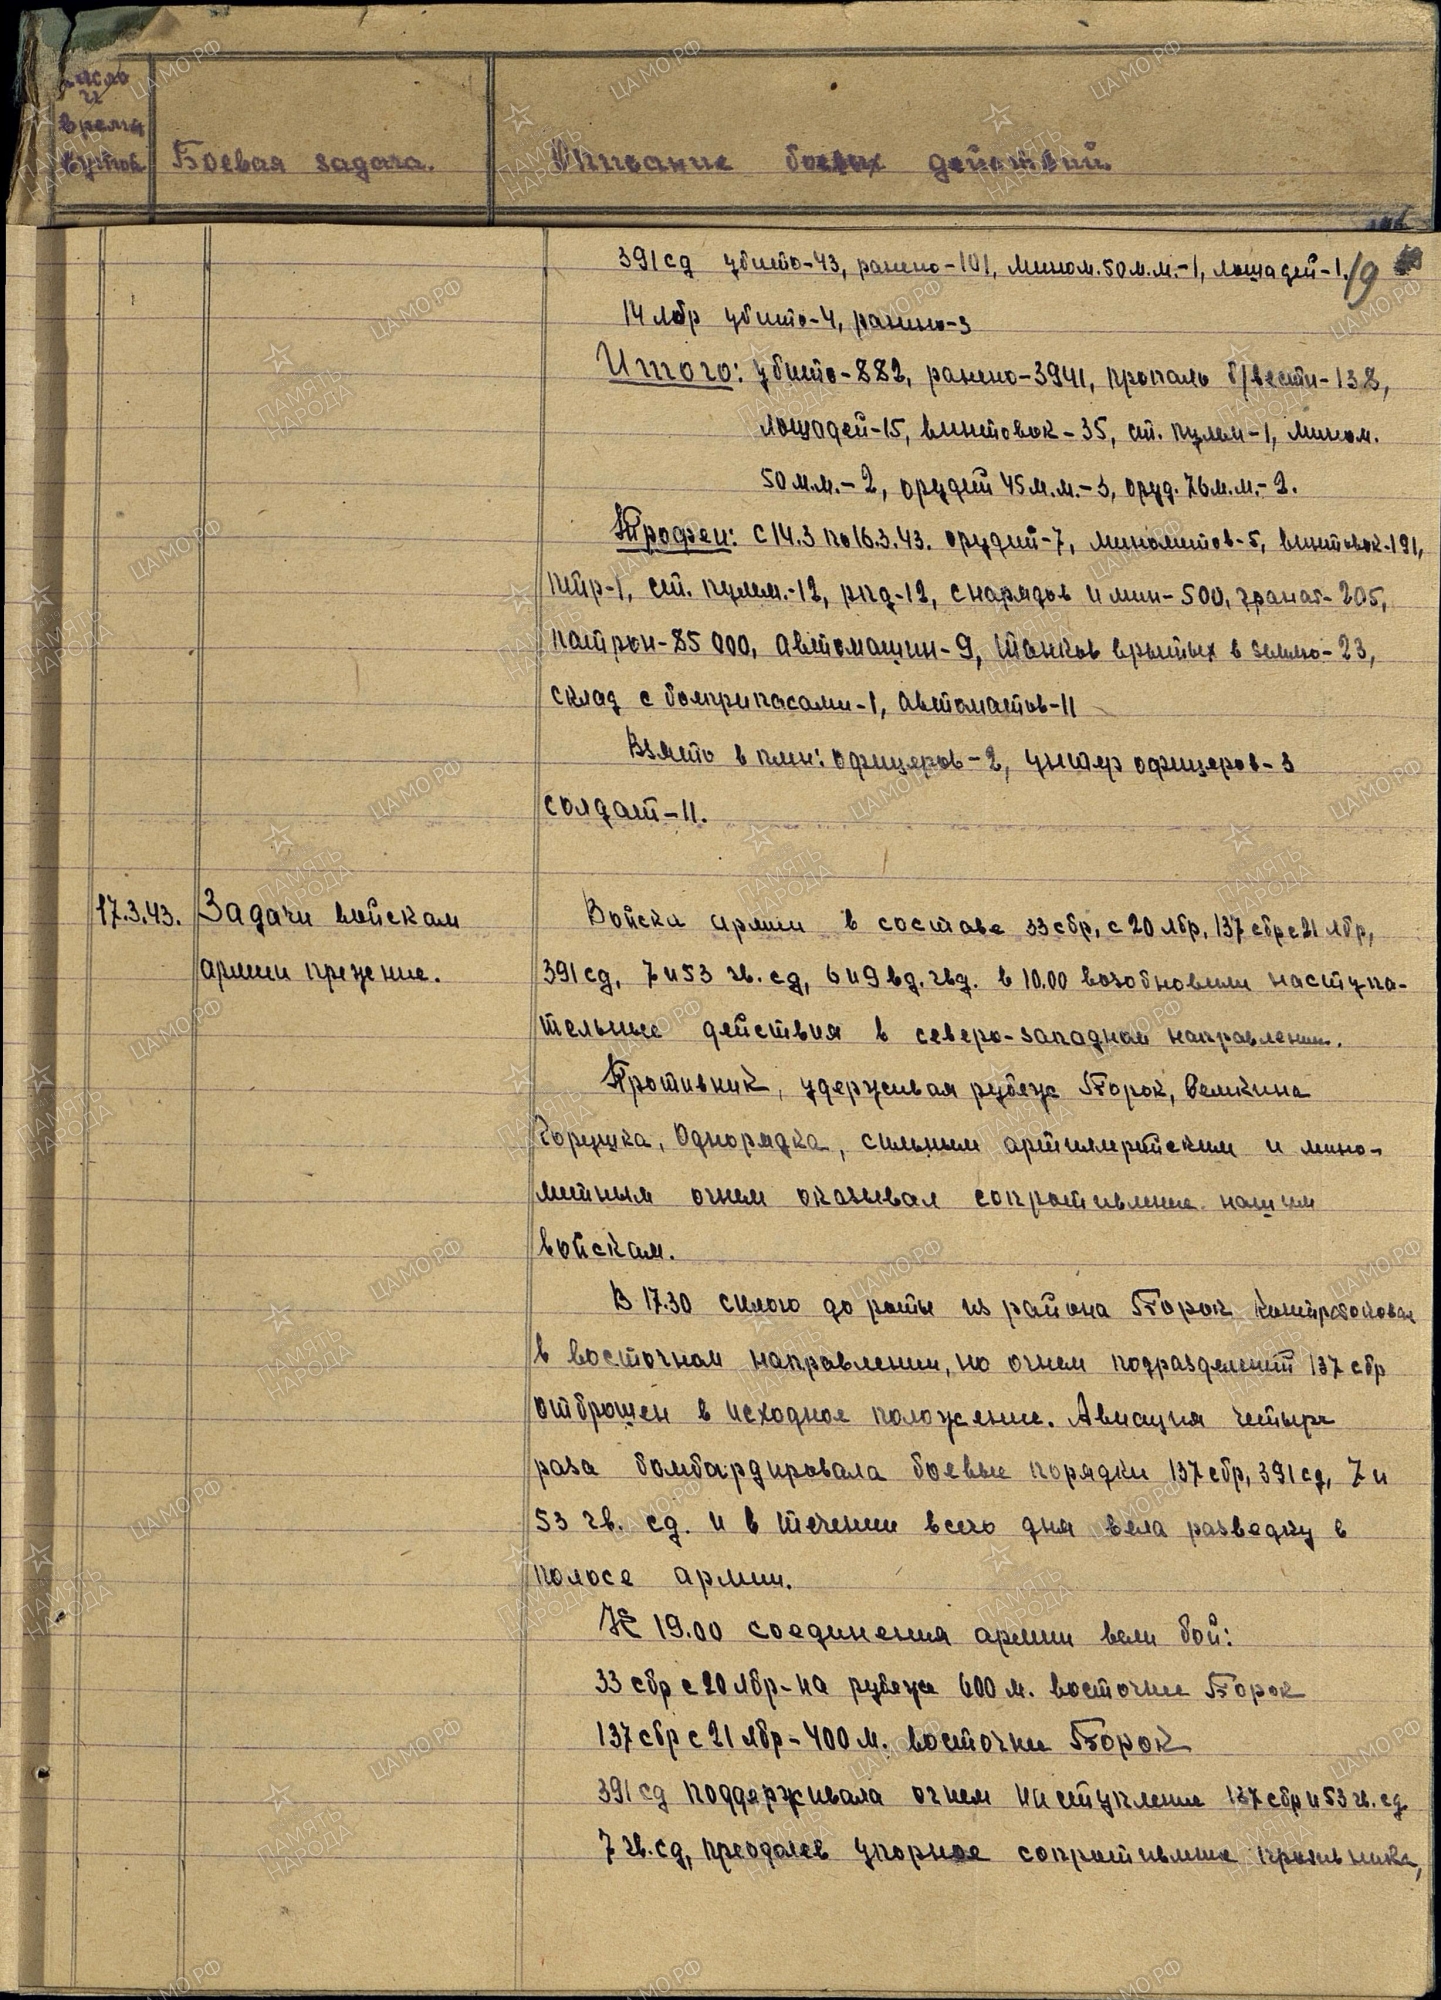 число
и
время
суток
Боевая задача.
Описание боевых действий.
19
391 сд убито-43, ранено-101, мином. 50 м.м.-1, лошадей-1.
14 лбр убито-4, ранено-3
Итого: убито-882, ранено-3941, пропало б/вести-138,
лошадей-15, винтовок-35, ст. пулем-1, мином.
50 м.м.-2, орудий 45 м.м.-3, оруд. 76 м.м.-2.
Трофеи: с 14.3 по 16.3.43. орудий-7, минометов-5, винтовок-191,
птр-1, ст. пулем.-12, рпд-12, снарядов и мин-500, гранат-205,
патрон-85 000, автомашин-9, танков врытых в землю-23,
склад с боеприпасами-1, автоматов-11
Взято в плен: офицеров-2, унтер офицеров-3
солдат-11.
17.3.43.
Задачи войскам
армии прежние.
Войска армии в составе 33 сбр, с 20 лбр, 137 сбр с 21 лбр,
391 сд, 7 и 53 гв. сд, 6 и 9 вд. гвд. в 10.00 возобновили наступа-
тельные действия в северо-западном направлении.
Противник, удерживая рубеж Борок, Великина
Горушка, Однорядка, сильным артиллерийским и мино-
метным огнем оказывал сопротивление нашим
войскам.
В 17.30 силою до роты из района Борок контратаковал
в восточном направлении, но огнем подразделений 137 сбр
отброшен в исходное положение. Авиация четыре
раза бомбардировала боевые порядки 137 сбр, 391 сд, 7 и
53 гв. сд. и в течении всего дня вела разведку в
полосе армии.
К 19.00 соединения армии вели бой:
33 сбр с 20 лбр-на рубеже 600 м. восточнее Борок
137 сбр с 21 лбр-400 м. восточнее Борок
391 сд поддерживала огнем наступление 137 сбр и 53 гв. сд
7 гв. сд, преодолев упорное сопротивление противника,